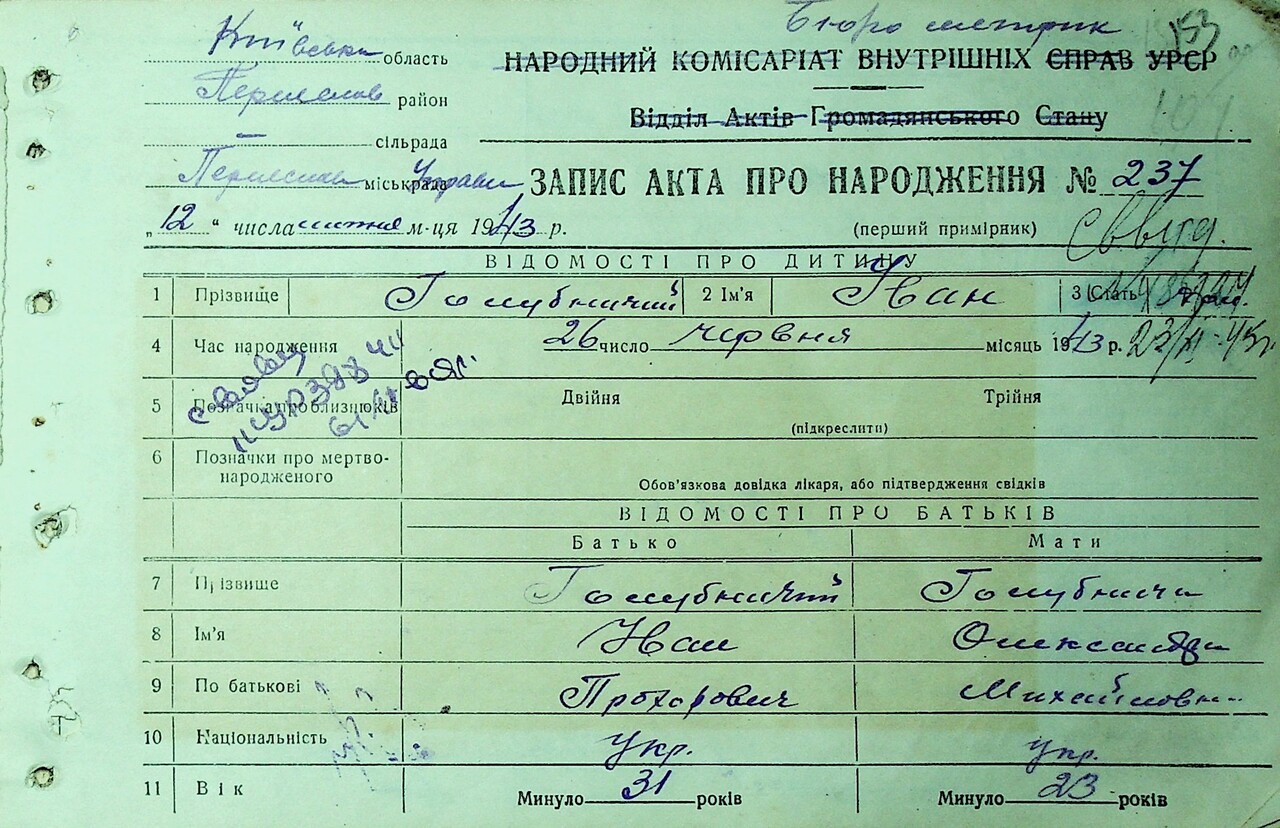 Бюро метрик
153
Київська область
НАРОДНИЙ КОМІСАРІАТ ВНУТРІШНІХ СПРАВ УРСР
район
Відділ Актів Громадянського Стану
107
— сільрада
міськрада Управи
ЗАПИС АКТА ПРО НАРОДЖЕННЯ № 237
„12“ числа м-ця 1943 р.
(перший примірник)
ВІДОМОСТІ ПРО ДИТИНУ
1 Прізвище Голубничий 2 Ім'я Іван 3 Стать
4 Час народження 26 число червня місяць 1943 р.
5 Позначка про близнюків Двійня Трійня
(підкреслити)
6 Позначки про мертво-
народженого
Обов'язкова довідка лікаря, або підтвердження свідків
ВІДОМОСТІ ПРО БАТЬКІВ
Батько Мати
7 Прізвище Голубничий Голубнича
8 Ім'я Иван Олександра
9 По батькові Прохорович Михайловна
10 Національність укр. укр.
11 Вік Минуло 31 років Минуло 23 років